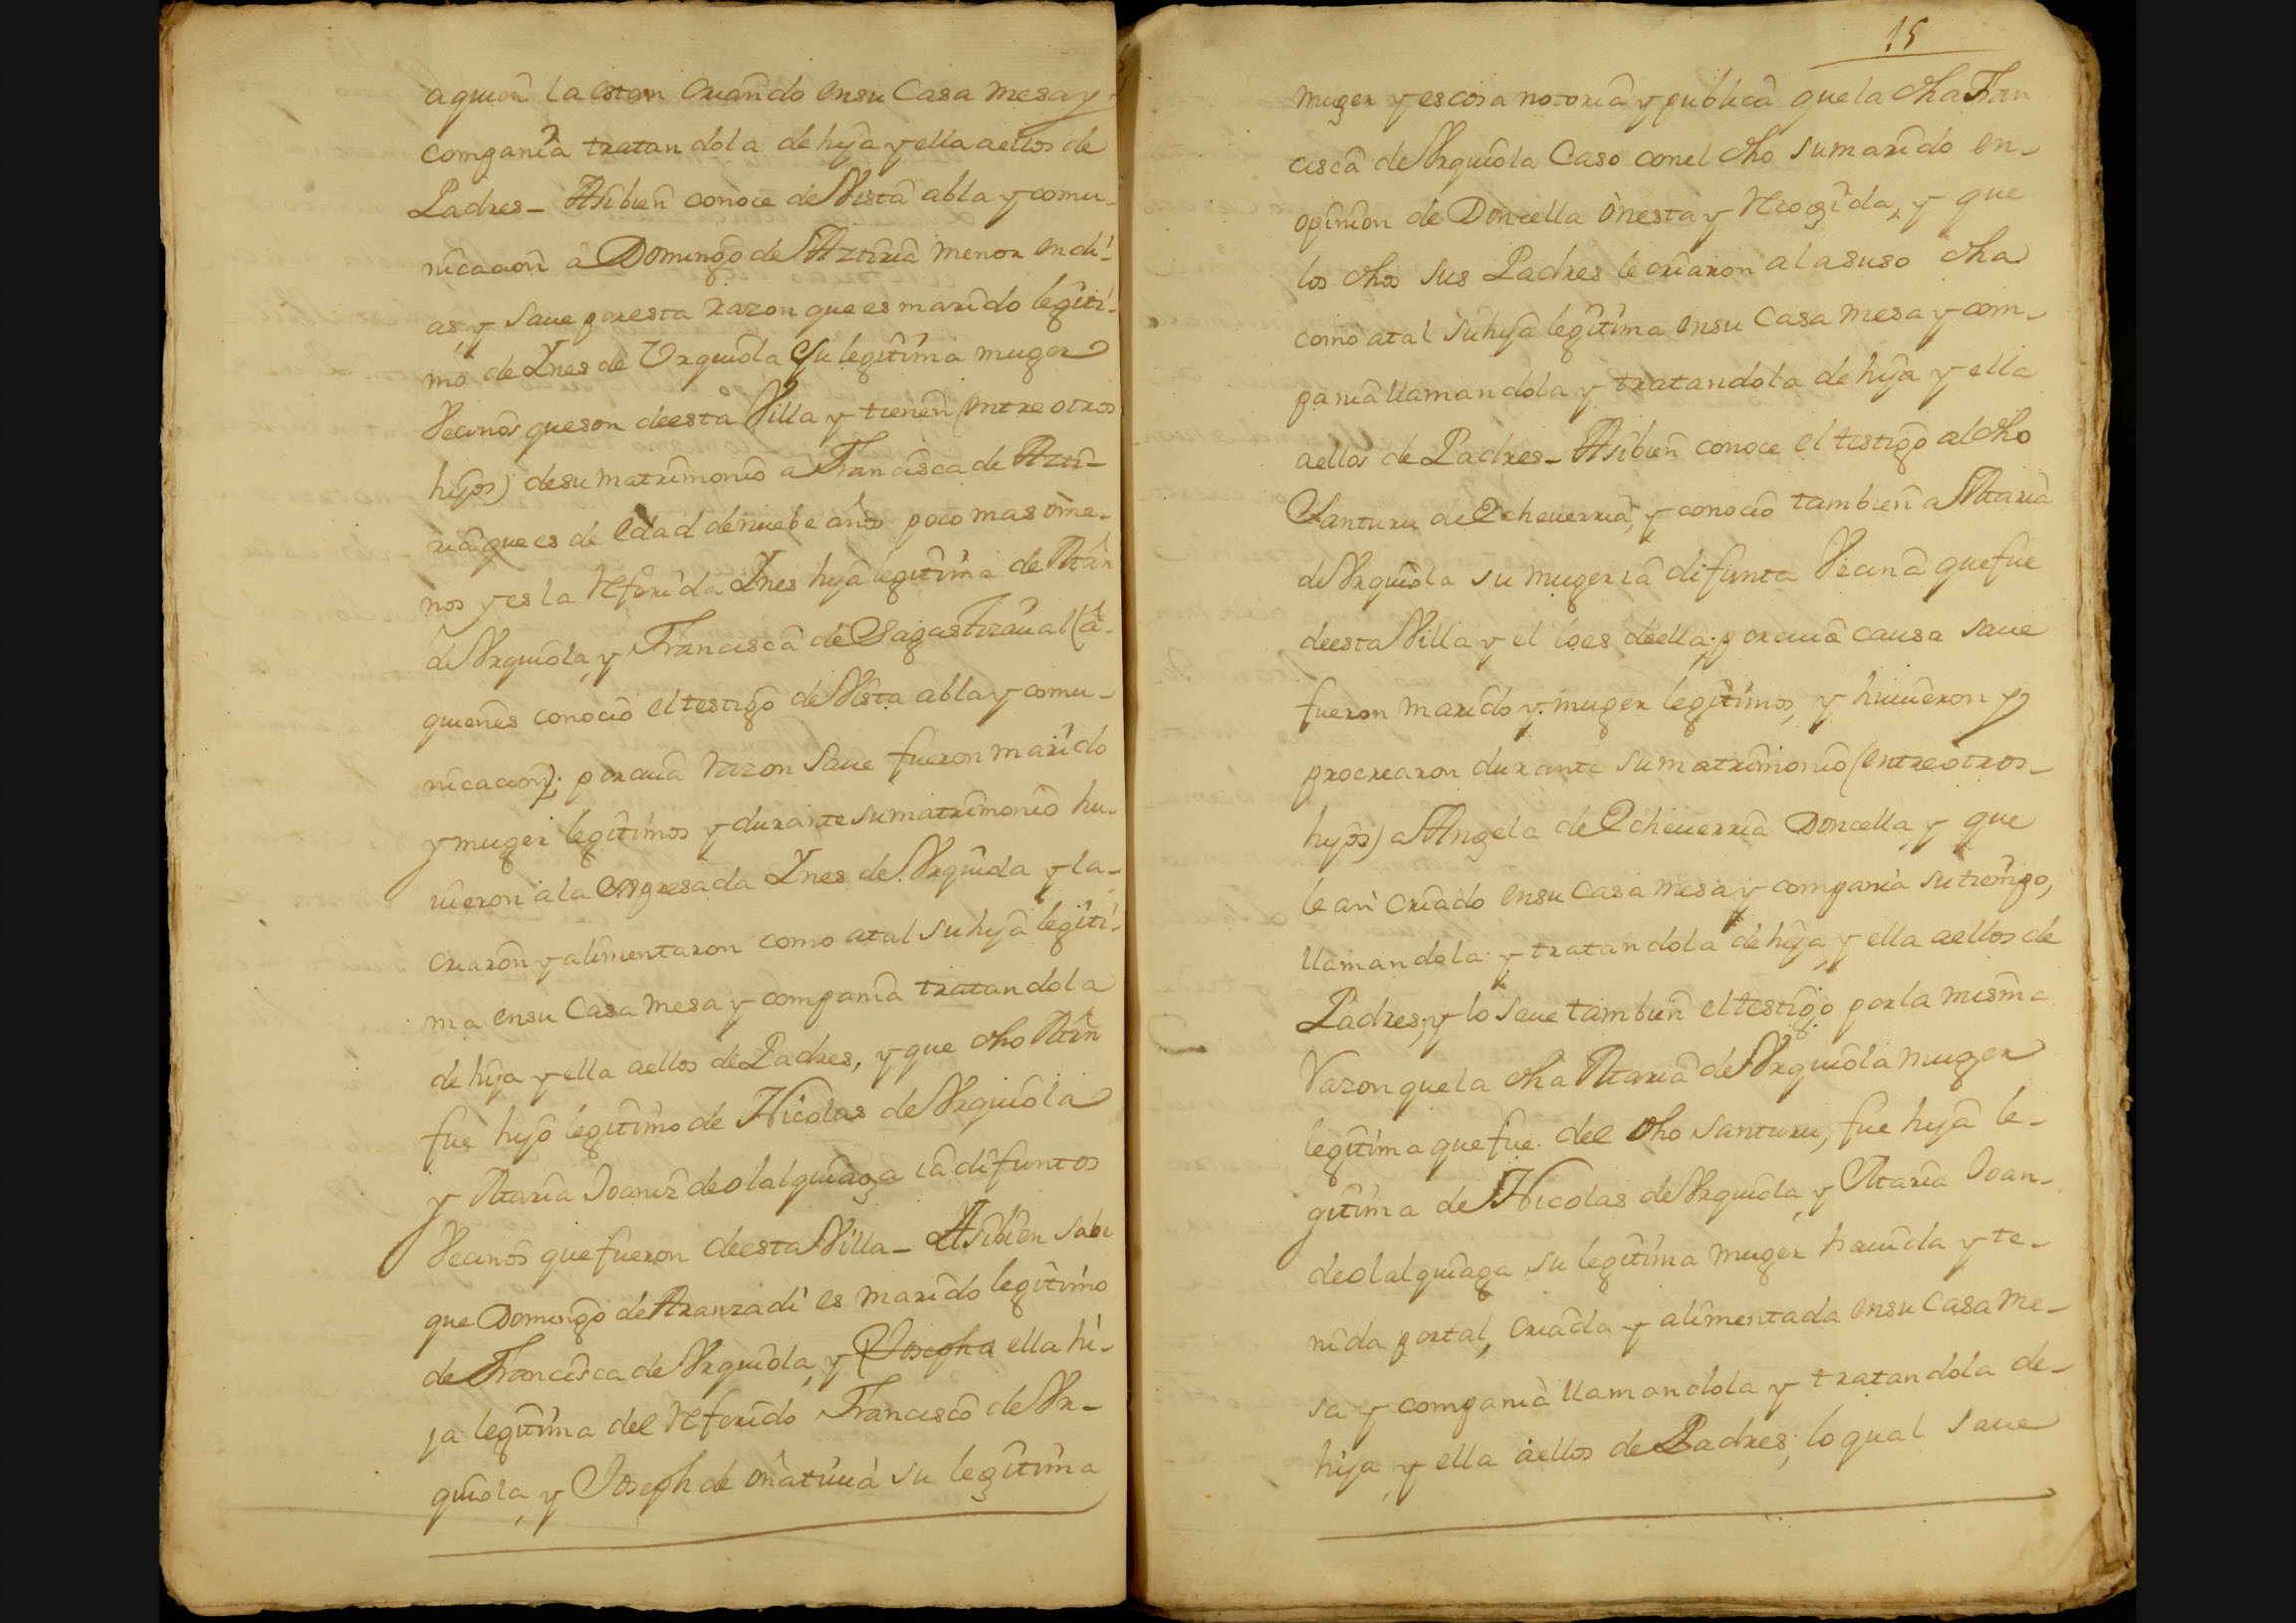 aquien la estan criando en su Casa mesa y
compania tratandola de hija y ella a ellos de
Padres_ Asibien conoce de Vista abla y comu_
nicacion a Domingo de Aztiria menor en di_
as, y saue por esta razon que es marido legiti_
mo de Ynes de Vrquiola su legitima muger
Vecinos que son de esta Villa y tienen (entre otros
hijos) de su matrimonio a Francisca de Azti_
ria que es de edad de nuebe años poco mas ome_
nos y es la Referida Ynes hija legitima de Mrn
de Vrquiola, y Francisca de Sagastizaual (a_
quienes conocio el testigo de Vista abla y comu_
nicacion); por cuia razon saue fueron marido
y muger legitimos y durante su matrimonio hu_
uieron a la expresada Ynes de Vrquiola y la_
criaron y alimentaron como atal su hija legiti_
ma en su Casa mesa y compania tratandola
de hija y ella aellos de Padres, y que dho Mrn
fue hijo legitimo de Nicolas de Vrquiola
y Maria Joaniz de olalquiaga ia difuntos
Vecinos que fueron de esta Villa_ Asibien sabe
que Domingo de Aranzadi es marido legitimo
de Francisca de Vrquiola, y Josepha ella hi_
ja legitima del Referido Francisco de Vr_
quiola, y Joseph de oñatiuia su legitima
15
muger y es cosa notoria y publica que la dha Fran
cisca de Vrquiola Caso con el dho su marido en_
opinion de Doncella onesta y Recogida, y que
los dhos sus Padres le criaron a la suso dha
como atal su hija legitima en su Casa mesa y com_
pania llamandola y tratandola de hija y ella
aellos de Padres_ Asibien conoce el testigo al dho
Santuru de Echeuerria, y conocio tambien a Maria
de Vrquiola su muger ia difunta Vecina que fue
de esta Villa y el lo es de ella; por cuia causa saue
fueron marido y muger legitimos, y huuieron y
procrearon durante su matrimonio (entre otros_
hijos) a Angela de Echeuerria Doncella, y que
le an criado en su Casa mesa y compania su tiempo,
llamandola y tratandola de hija, y ella aellos de
Padres, y lo saue tambien el testigo por la misma
Razon que la dha Maria de Vrquiola muger
legitima que fue del dho Santuru, fue hija le_
gitima de Nicolas de Vrquiola, y Maria Joan_
de olalquiaga su legitima muger hauida y te_
nida por tal, criada y alimentada en su Casa me_
sa y compania llamandola y tratandola de_
hija, y ella aellos de Padres; lo qual saue